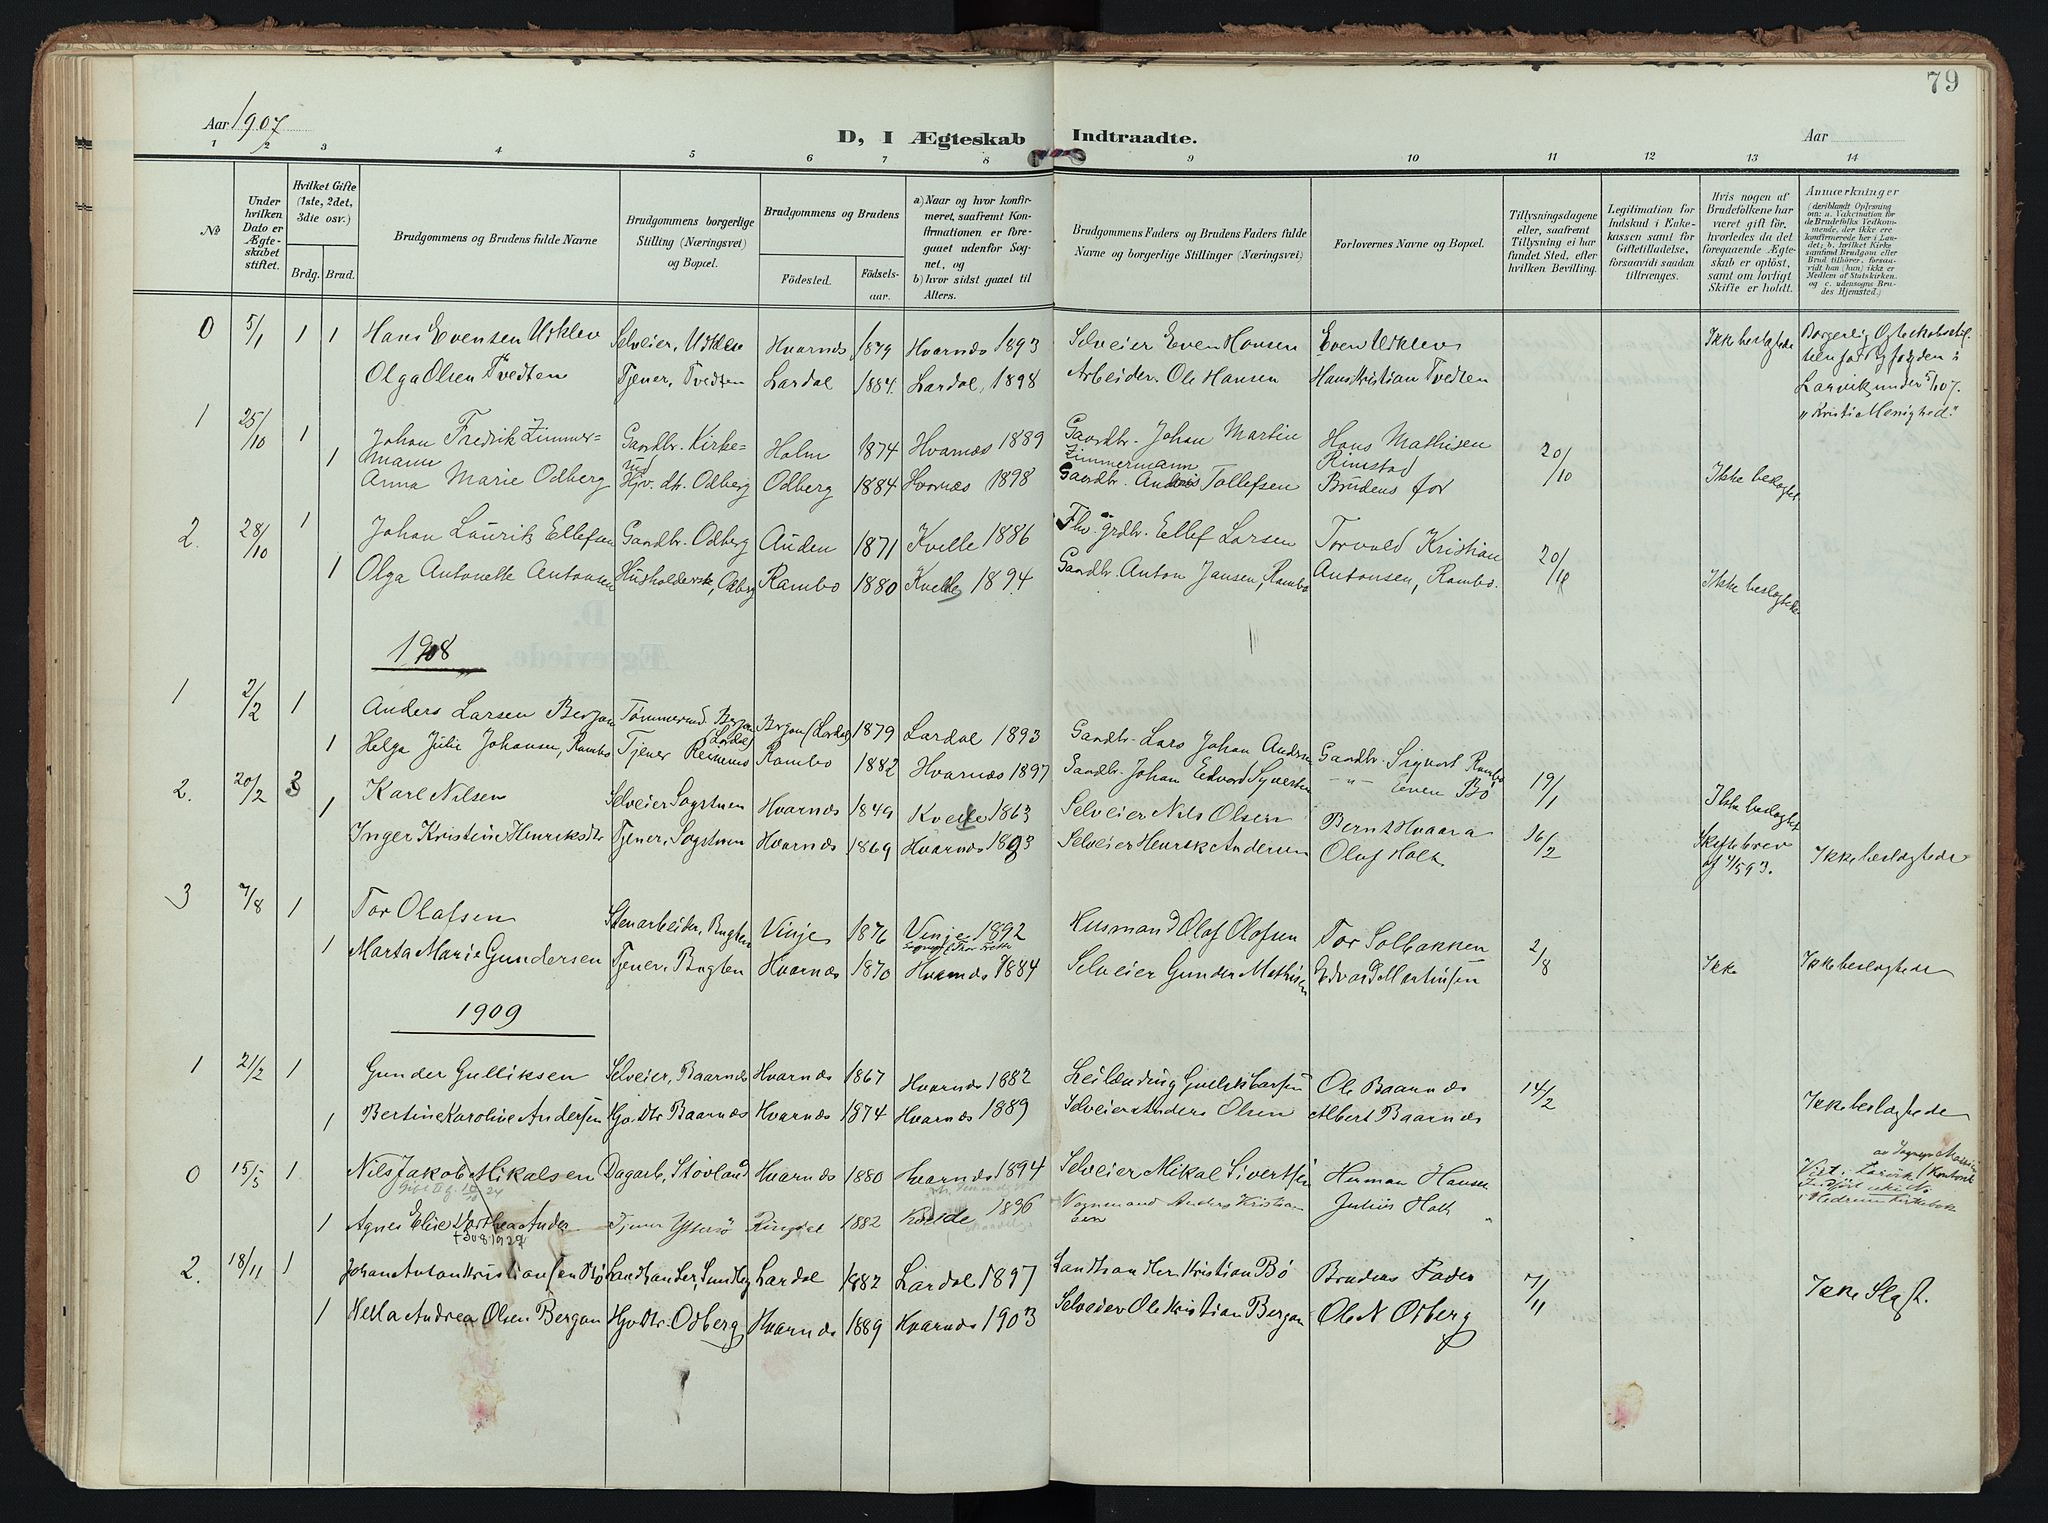 79
Aar 1907
D, I Ægteskab Indtraadte.
Aar
1 2 3 4 5 6 7 8 9 10 11 12 13 14
No
Under hvilken Dato er Ægteskabet stiftet.
Hvilket Gifte (1ste, 2det, 3die osv.)
Brdg. Brud.
Brudgommens og Brudens fulde Navne
Brudgommens borgerlige Stilling (Næringsvei) og Bopæl.
Brudgommens og Brudens
Fødested. Fødsels-aar.
a) Naar og hvor konfirmeret, saafremt Konfirmationen er foregaaet udenfor Sognet, og
b) hvor sidst gaaet til Alters.
Brudgommens Faders og Brudens Faders fulde Navne og borgerlige Stillinger (Næringsvei)
Forlovernes Navne og Bopæl.
Tillysningsdagene eller, saafremt Tillysning ei har fundet Sted, efter hvilken Bevilling.
Legitimation for Indskud i Enkekassen samt for Giftetilladelse, forsaavidt saadan tiltrænges.
Hvis nogen af Brudefolkene har været gift før, hvorledes da det foregaaende Ægteskab er opløst, samt om lovligt Skifte er holdt.
Anmærkninger
(deriblandt Oplysning om: a. Vakcination for de Brudefolks Vedkommende, der ikke ere konfirmerede her i Landet; b. hvilket Kirkesamfund Brudgom eller Brud tilhører, forsaavidt han (hun) ikke er Medlem af Statskirken. og c. udensogns Brudes Hjemsted.)
0 5/1 1 1 Hans Evensen Udklev Selveier, Udklev Hvarnes 1879 Hvarnes 1893 Selveier Even Hansen Even Udklev Ikke beslægtede Borgerlig
Olga Olsen Tvedten Tjener, Tvedten Lardal 1884. Lardal, 1898 Arbeider. Ole Hansen Hans Kristian Tvedten
Larvik under 5/1 07.
"Kristi Menighed."
1 25/10 1 Johan Fredrik Zimmer= Gaardbr. Kirke= Holm 1874 Hvarnes 1889 Gaardbr. Johan Martin Hans Mathisen 20/10
mann Zimmermann Rimstad
1 Anna Marie Odberg Hjv. dtr. Odberg Odberg 1884 Hvarnes 1898 Gaardbr. Anders Tollefsen Brudens far Ikke beslægtet
2. 28/10 1 Johan Laurits Ellefsen Gaardbr. Odberg Auden 1871 Kvelle 1886 Fhv. grdbr. Ellef Larsen Torvald Kristian
1 Olga Antonette Antonsen Husholderske, Odberg Rambo 1880 Kvelle 1894 Gaardbr. Anton Jansen, Rambo Antonsen, Rambo. 20/10 Ikke beslægtede
1908
1 2/2 1 Anders Larsen Berjan Tømmermd. Berjan (Lardal) Berjan (Lardal) 1879 Lardal 1893 Gaardbr. Lars Johan Andersen Gaardbr. Sigvart Rambo
1 Helga Julie Johansen, Rambo Tjener Rambo 1882 Hvarnes 1897 Gaardbr. Johan Edvard Syvertsen — " — Even Bø 19/1 Ikke beslægtet
2. 20/2 3 Karl Nilsen Selveier Sogstuen Hvarnes 1849 Kvelle 1863 Selveier Nils Olsen Bernt Hvaara
1 Inger Kristine Henriksdtr Tjener, Sogstuen Hvarnes 1869 Hvarnes 1883 Selveier Henrik Andersen Olaf Holt 16/2 Skiftebrev af 4/5 93. Ikke beslægtede
3 7/8 1 Tor Olafsen Stenarbeider, Bugten Vinje 1876 Vinje 1892 Husmand Olaf Olafsen Tor Solbakken
1 Marta Marie Gundersen Tjener, Bugten Hvarnes 1870 Hvarnes 1884 Selveier Gunder Mathisen Edvard Martinsen 2/8 Ikke Ikke beslægtede
1909
1 21/2 1 Gunder Gulliksen Selveier, Baarnes Hvarnes 1867 Hvarnes 1882 Leilænding Gullik Larsen Ole Baarnes 14/2
1 Bertine Karoline Andersen Hjv. Dtr. Baarnes Hvarnes 1874 Hvarnes 1889 Selveier Anders Olsen Albert Baarnes Ikke beslægtede
0 15/5 1 Nils Jakob Mikalsen Dagarb. Støvland Hvarnes 1880 Hvarnes 1894 Selveier Mikal Sivertsen Herman Hansen
1 Agnes Elise Dorthea Anders Tjener Ytterø Ringdal 1882 Kvelde 1896 Vognmand Anders Kristian sen Julius Holt "
+ 30 8 1927
Viet i Larvik
Indført
i Hedrum Kirkebok
2. 18/11 1 Johan Anton Kristiansen Bø Landhandler, Lardal 1882 Lardal 1897 Landhandler Kristian Bø Brudens Fader 7/11 Ikke Slægt.
1 Hella Andrea Olsen Bergan Hjv Dtr. Odberg Hvarnes 1889 Hvarnes 1903 Selveier Ole Kristian Bergan Ole N Odberg